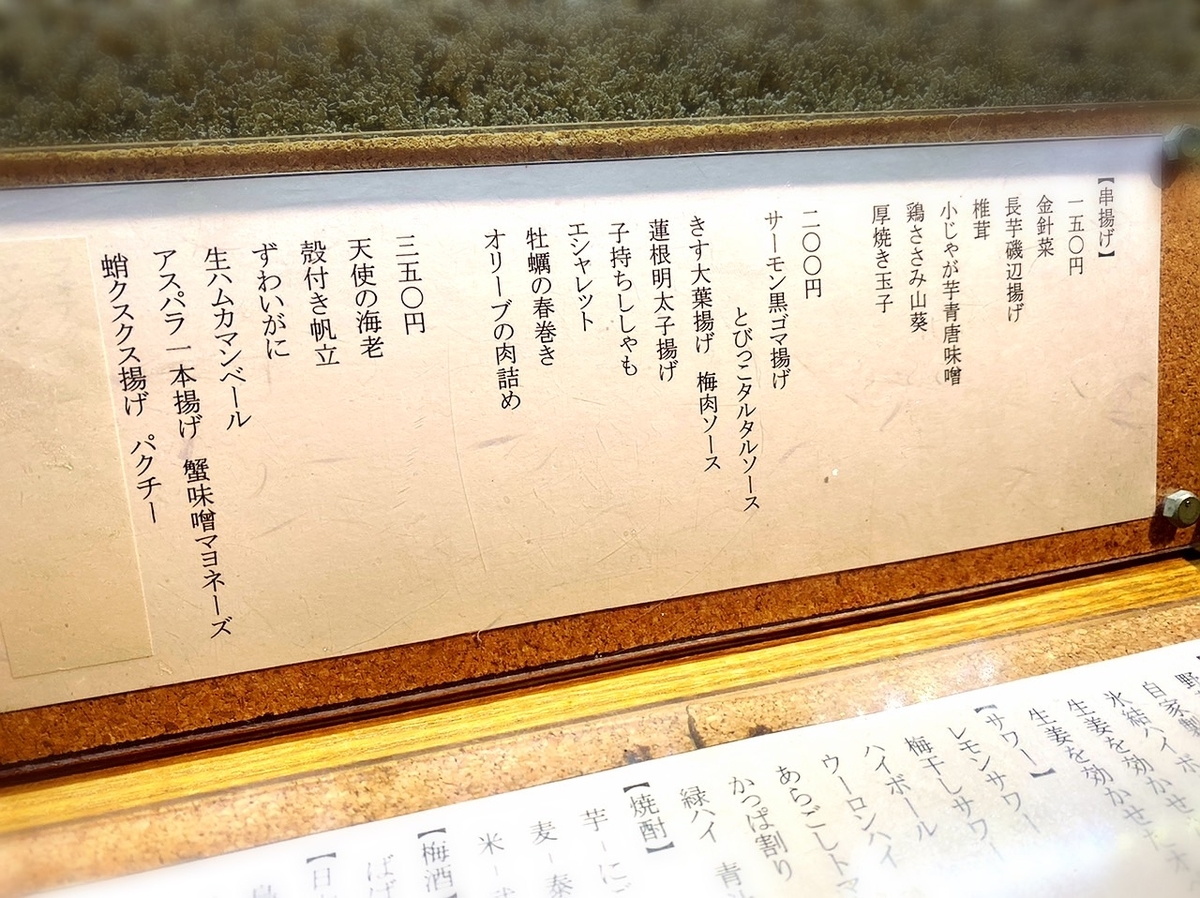 【串揚げ】
一五〇円
金針菜
長芋磯辺揚げ
椎茸
小じゃが芋青唐味噌
鶏ささみ山葵
厚焼き玉子
二〇〇円
サーモン黒ゴマ揚げ
とびっこタルタルソース
きす大葉揚げ 梅肉ソース
蓮根明太子揚げ
子持ちししゃも
エシャレット
牡蠣の春巻き
オリーブの肉詰め
三五〇円
天使の海老
殻付き帆立
ずわいがに
生ハムカマンベール
アスパラ一本揚げ 蟹味噌マヨネーズ
蛸クスクス揚げ パクチー
野
自家製
氷結ハイボ
生姜を効かせた
生姜を効かせ
【サワー】
レモンサワー
梅干しサワー
ハイボール
ウーロンハイ
あらごしトマ
かっぱ割り
緑ハイ 青汁
【焼酎】
芋-に
麦-泰
米-
【梅酒】
ばば
【日